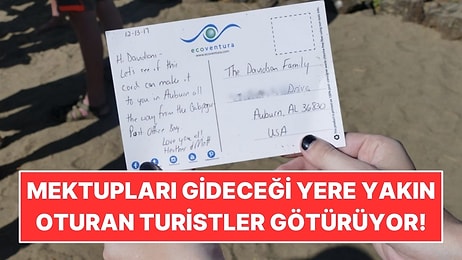 12-13-17
Hi Davidsons -
Let's see if this
card can make it
to you in Auburn all
the way from the Galapagos
Post Office Bay
Love you all
Heather & Matt
ecoventura
www.ecoventura.com
The Davidson Family
Drive
Auburn, AL 36830
USA
MEKTUPLARI GİDECEĞİ YERE YAKIN
OTURAN TURİSTLER GÖTÜRÜYOR!